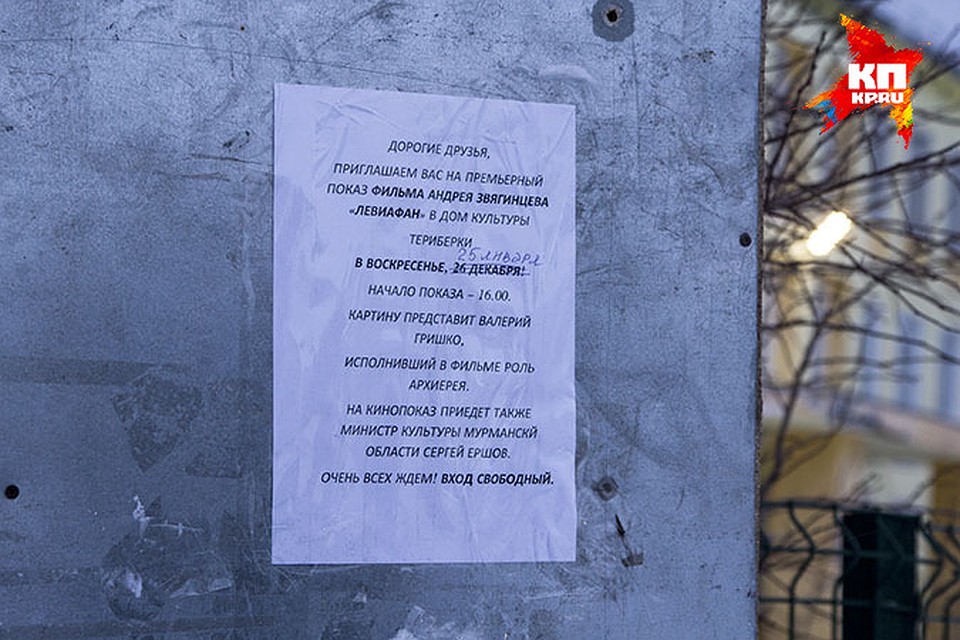 КП
KP.RU
ДОРОГИЕ ДРУЗЬЯ,
ПРИГЛАШАЕМ ВАС НА ПРЕМЬЕРНЫЙ
ПОКАЗ ФИЛЬМА АНДРЕЯ ЗВЯГИНЦЕВА
«ЛЕВИАФАН» В ДОМ КУЛЬТУРЫ
ТЕРИБЕРКИ
25 января
В ВОСКРЕСЕНЬЕ, 26 ДЕКАБРЯ!
НАЧАЛО ПОКАЗА – 16.00.
КАРТИНУ ПРЕДСТАВИТ ВАЛЕРИЙ
ГРИШКО,
ИСПОЛНИВШИЙ В ФИЛЬМЕ РОЛЬ
АРХИЕРЕЯ.
НА КИНОПОКАЗ ПРИЕДЕТ ТАКЖЕ
МИНИСТР КУЛЬТУРЫ МУРМАНСКЙ
ОБЛАСТИ СЕРГЕЙ ЕРШОВ.
ОЧЕНЬ ВСЕХ ЖДЕМ! ВХОД СВОБОДНЫЙ.